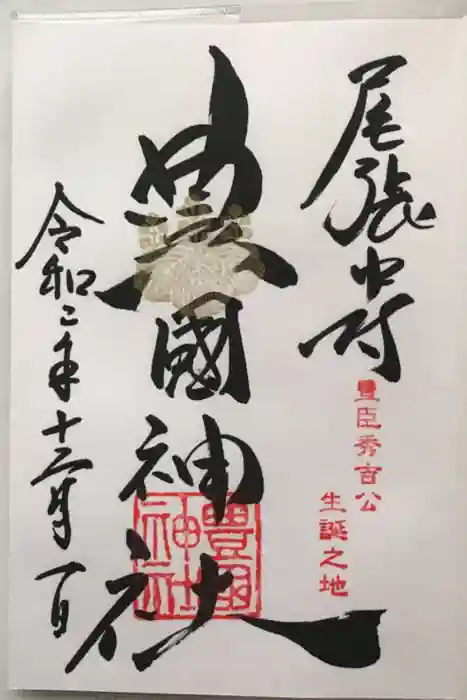 尾張中村
豊臣秀吉公
生誕之地
豊國神社
豊國
神社
令和二年十二月一日